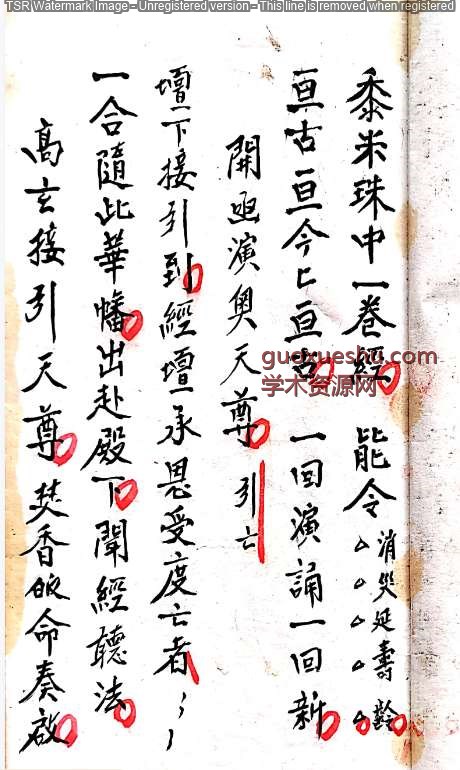 TSR Watermark Image - Unregistered version - This line is removed when registered
黍米珠中一卷經 能令消災延壽齡
亘古亘今匕亘古 一回演誦一回新
開函演奧天尊 引亡
壇下接引到經壇承恩受度亡者
一合隨此華幡出赴殿下聞經聽法
高玄接引天尊 焚香 命奏啟
guoxueshu.com
学术资源网